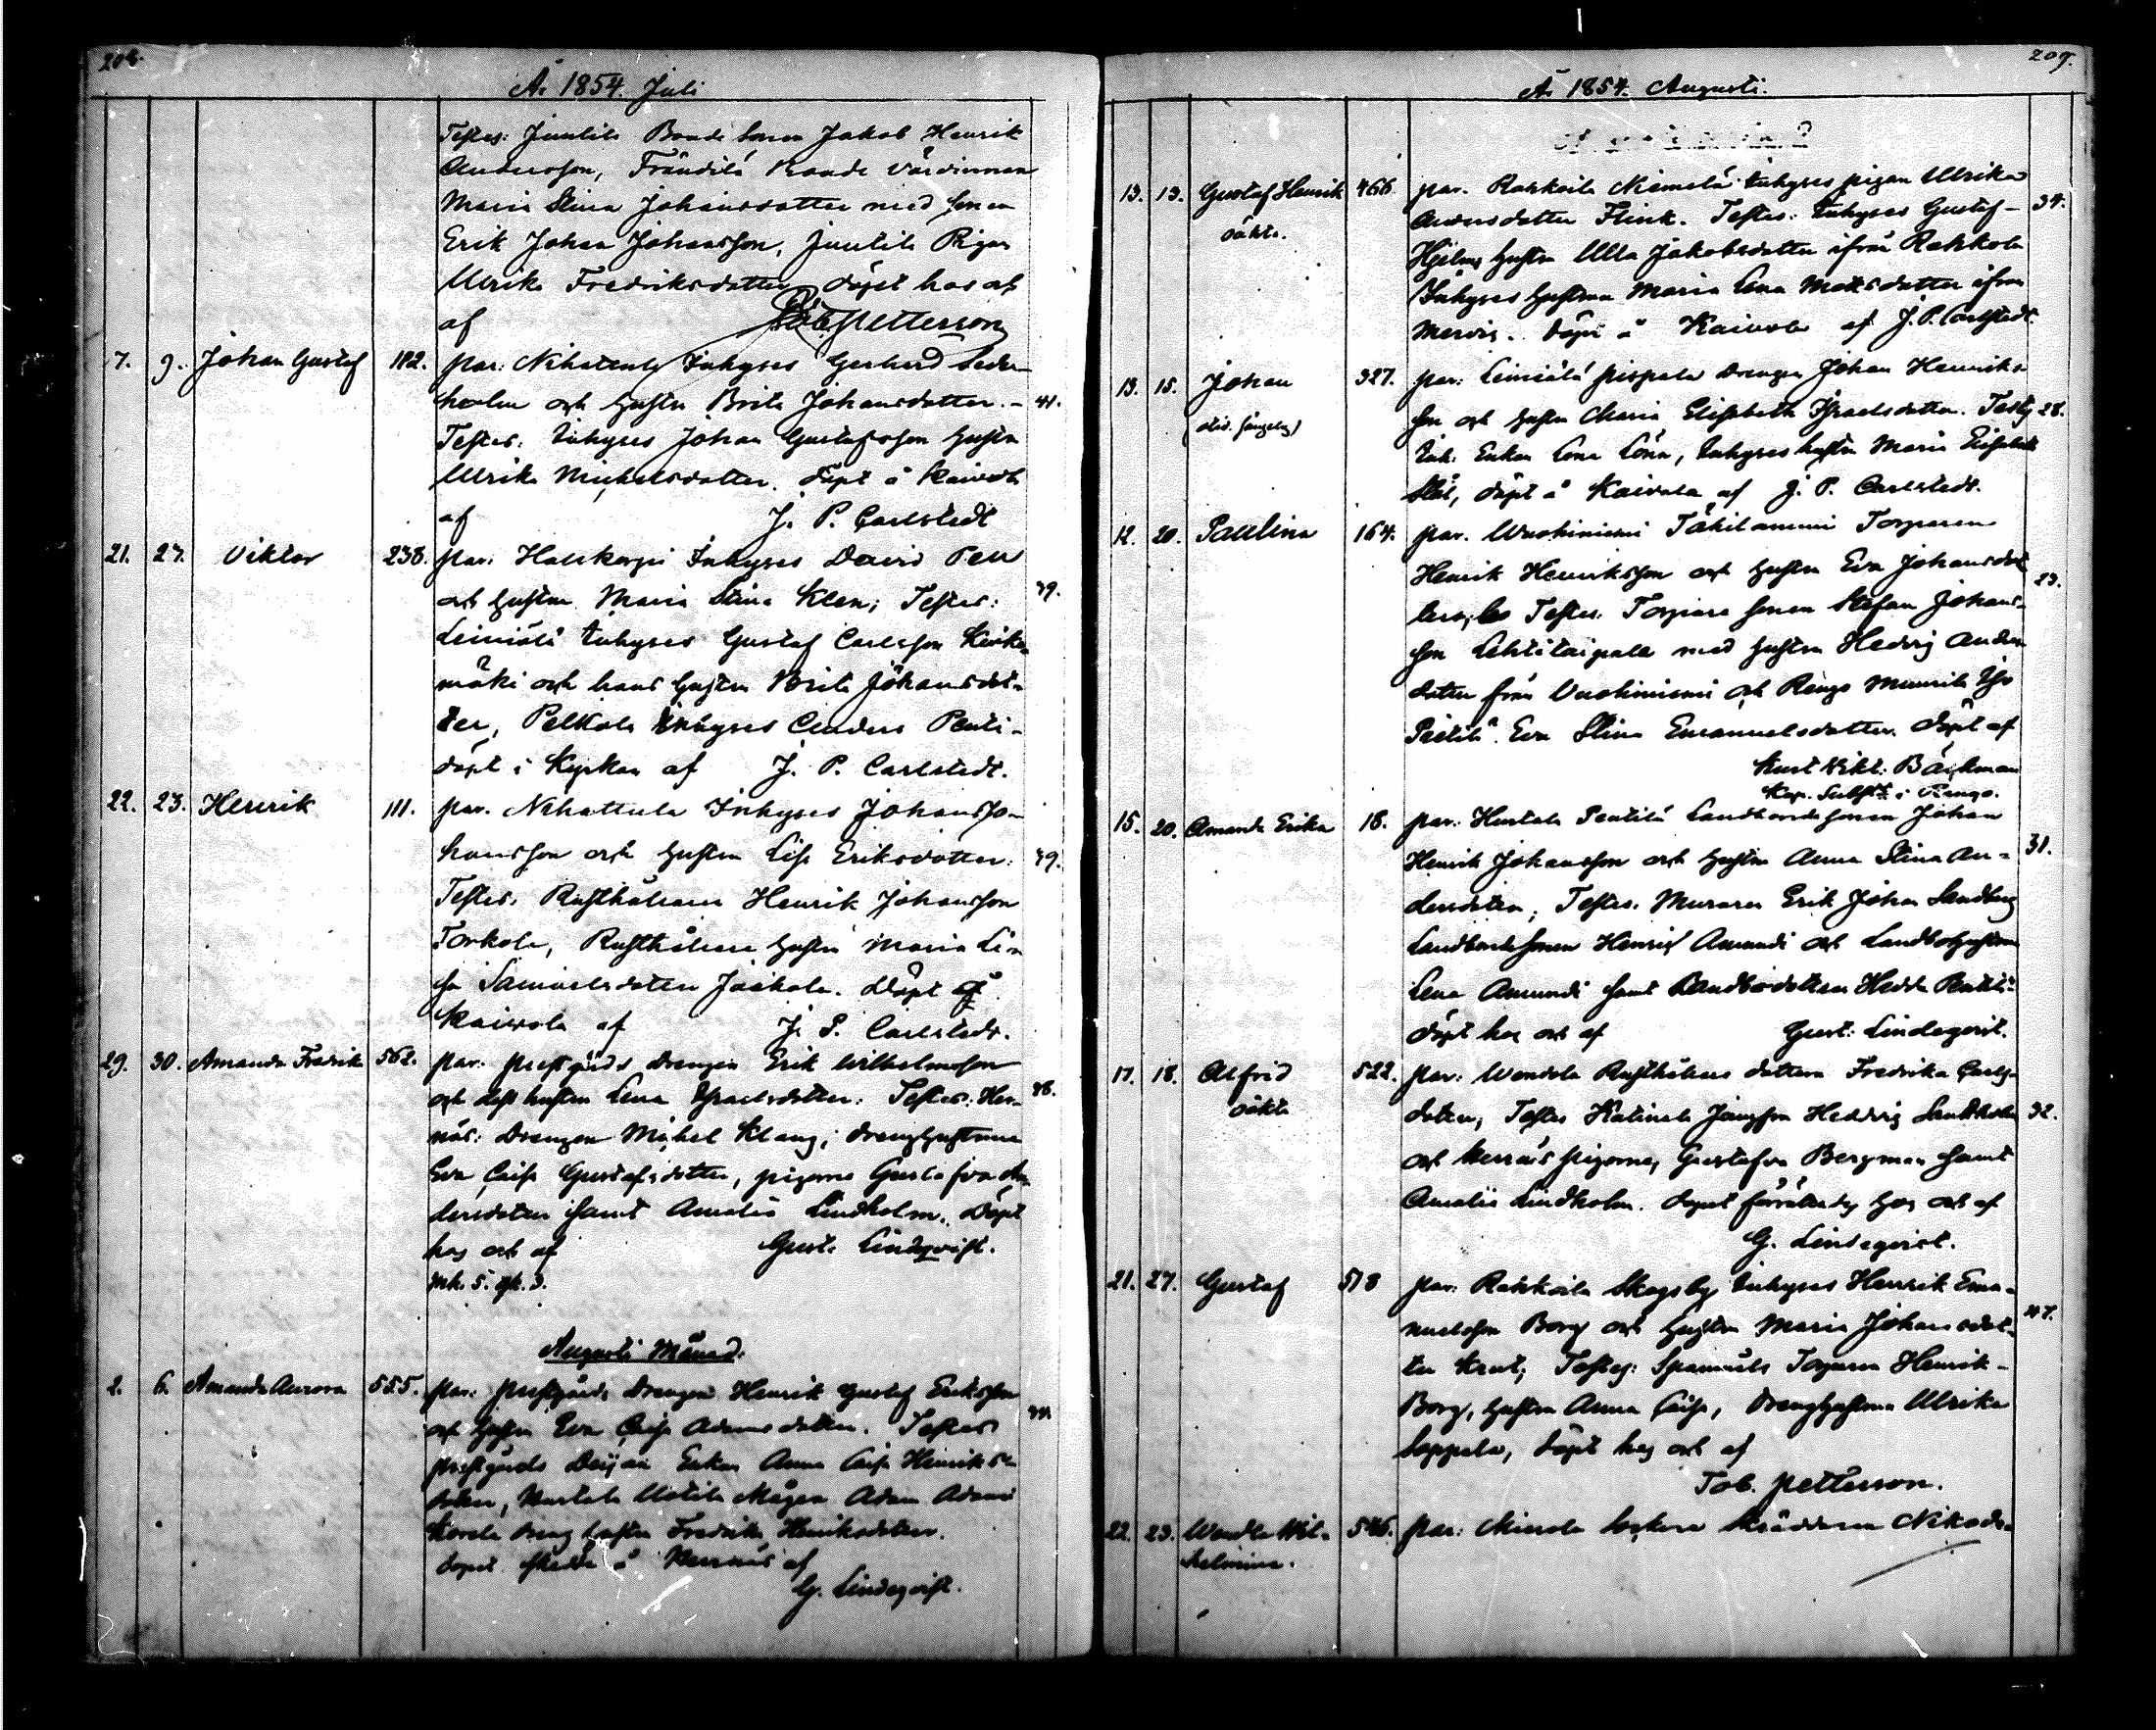 208.
År 1854. Juli
Testes: Juutila Bonde Sonen Jakob Henrik
Andersson, Frändilä Bonde värdinnan
Maria Stina Johansdotter med sonen
Erik Johan Johansson, Juutila Pigan
Ulrika Fredriksdotter, döpt hos och
af Tob. Petterson
7. 9. Johan Gustaf 112. par: Nihattula Inhyses Gerhard Seder-
holm och hustru Brita Johansdotter. – 41.
Testes: Inhyses Johan Gustafsson hustru
Ulrika Michelsdotter. Döpt å Kaivola
af J. P. Carlstedt
21. 27. Viktor 238. par: Halkorpi Inhyses David Pell
och hustru Maria Stina Klen; Testes: 39.
Leiniälä Inhyses Gustaf Carlsson
mäki och hans hustru Brita Johansdot-
ter, Pelkola Inhyses Anders Penti-
döpt i Kyrkan af J. P. Carlstedt.
22. 23. Henrik 111. par. Nihattula Inhyses Johan Jo-
hansson och hustru Lisa Eriksdotter: 39.
Testes. Rusthållaren Henrik Johansson
Torkola, Rusthållare hustru Maria Li-
sa Samuelsdotter Jaakola. Döpt å
Kaivola af J. P. Carlstedt.
29. 30. Amanda Fredrika 562. par. prestgårds drengen Erik Wilhelmsson
och dess hustru Lena Israelsdotter. Testes: Her- 38.
näs: Drengen Mikel Klang; drenghustrun
Eva Caisa Gustafsdotter, pigorna Gustafva An-
dersdotter samt Amalia Lindholm. Döpt
hos och af Gust. Lindeqvist.
mk. 5. qk. 3.
Augusti Månad.
2. 6. Amanda Aurora 555. par: prestgårds Drengen Henrik Gustaf Eriksson
och hustru Eva Caisa Adamsdotter. Testes
prestgårds Dejan Enkan Anna Caisa Henriks-
dotter, Uotila Mågen Adam
dreng hustru Fredrika Henriksdotter.
dopet skedde å Hernäs af
G. Lindeqvist.
209.
År 1854. Augusti.
13. 13. Gustaf Henrik 466 par. Rahkoila Niemelä Inhyses pigan Ulrika
oäkta. dotter Flink. Testes: Inhyses Gustaf 34.
Hjelms hustru Ulla Jakobsdotter ifrån Rahkoila
Inhyses hustrun Maria Lena Mattsdotter ifrån
Mervi. Döpt å Kaivola af J. P. Carlstedt.
13. 15. Johan 327. par: Leiniälä Pispala Drengen Johan Henriks-
son och hustru Maria Elisabeth Israelsdotter. Testes 28.
Inh. Enkan Lena Löna, Inhyses hustru Maria Elisabeth
döpt å Kaivola af J. P. Carlstedt.
12. 20. Paulina 164. par. Wuohiniemi Torparen
Henrik Henriksson och hustru Eva Johansdot- 23.
ter; Testes. Torpare sonen Stefan Johans-
son Lehtitaipale med hustru Hedvig Anders-
dotter från Vuohiniemi och Rengo
Eva Stina Emanuelsdotter. Döpt af
Kust Wikt: Bäckman
Kap. Subst: i Rengo.
15. 20. Amanda Erika 18. par: Hurtala Pentilä Landbonde sonen Johan
Henrik Johansson och hustru Anna Stina An- 31.
dersdotter; Testes. Muraren Erik Johan Sandberg
Landbonde sonen Henrik Amundi och Landbohustrun
Lena Amundi samt Landbodottern Hedda Pentilä
döpt hos och af Gust: Lindeqvist.
17. 18. Alfrid 522. par: Wendola Rusthållare dottern Fredrika Carls-
oäkta dotter; Testes Katinala Jungfrun Hedvig 32.
och Hernäs pigorna, Gustafva Bergman samt
Amalia Lindholm. Dopet förrättades hos och af
G. Lindeqvist.
21. 27. Gustaf 518 par: Rahkoila Skogsby Inhyses Henrik Ema-
nuelsson Borg och hustru Maria Johansdot- 47.
ter; Testes: Torparen Henrik
Borg, hustru Anna Caisa, Drenghustrun Ulrika
Seppala, döpt hos och af
Tob. Petterson.
22. 23. Wendla Wil- 546. par: Mierola Sockne Skräddaren Nikode-
helmina.